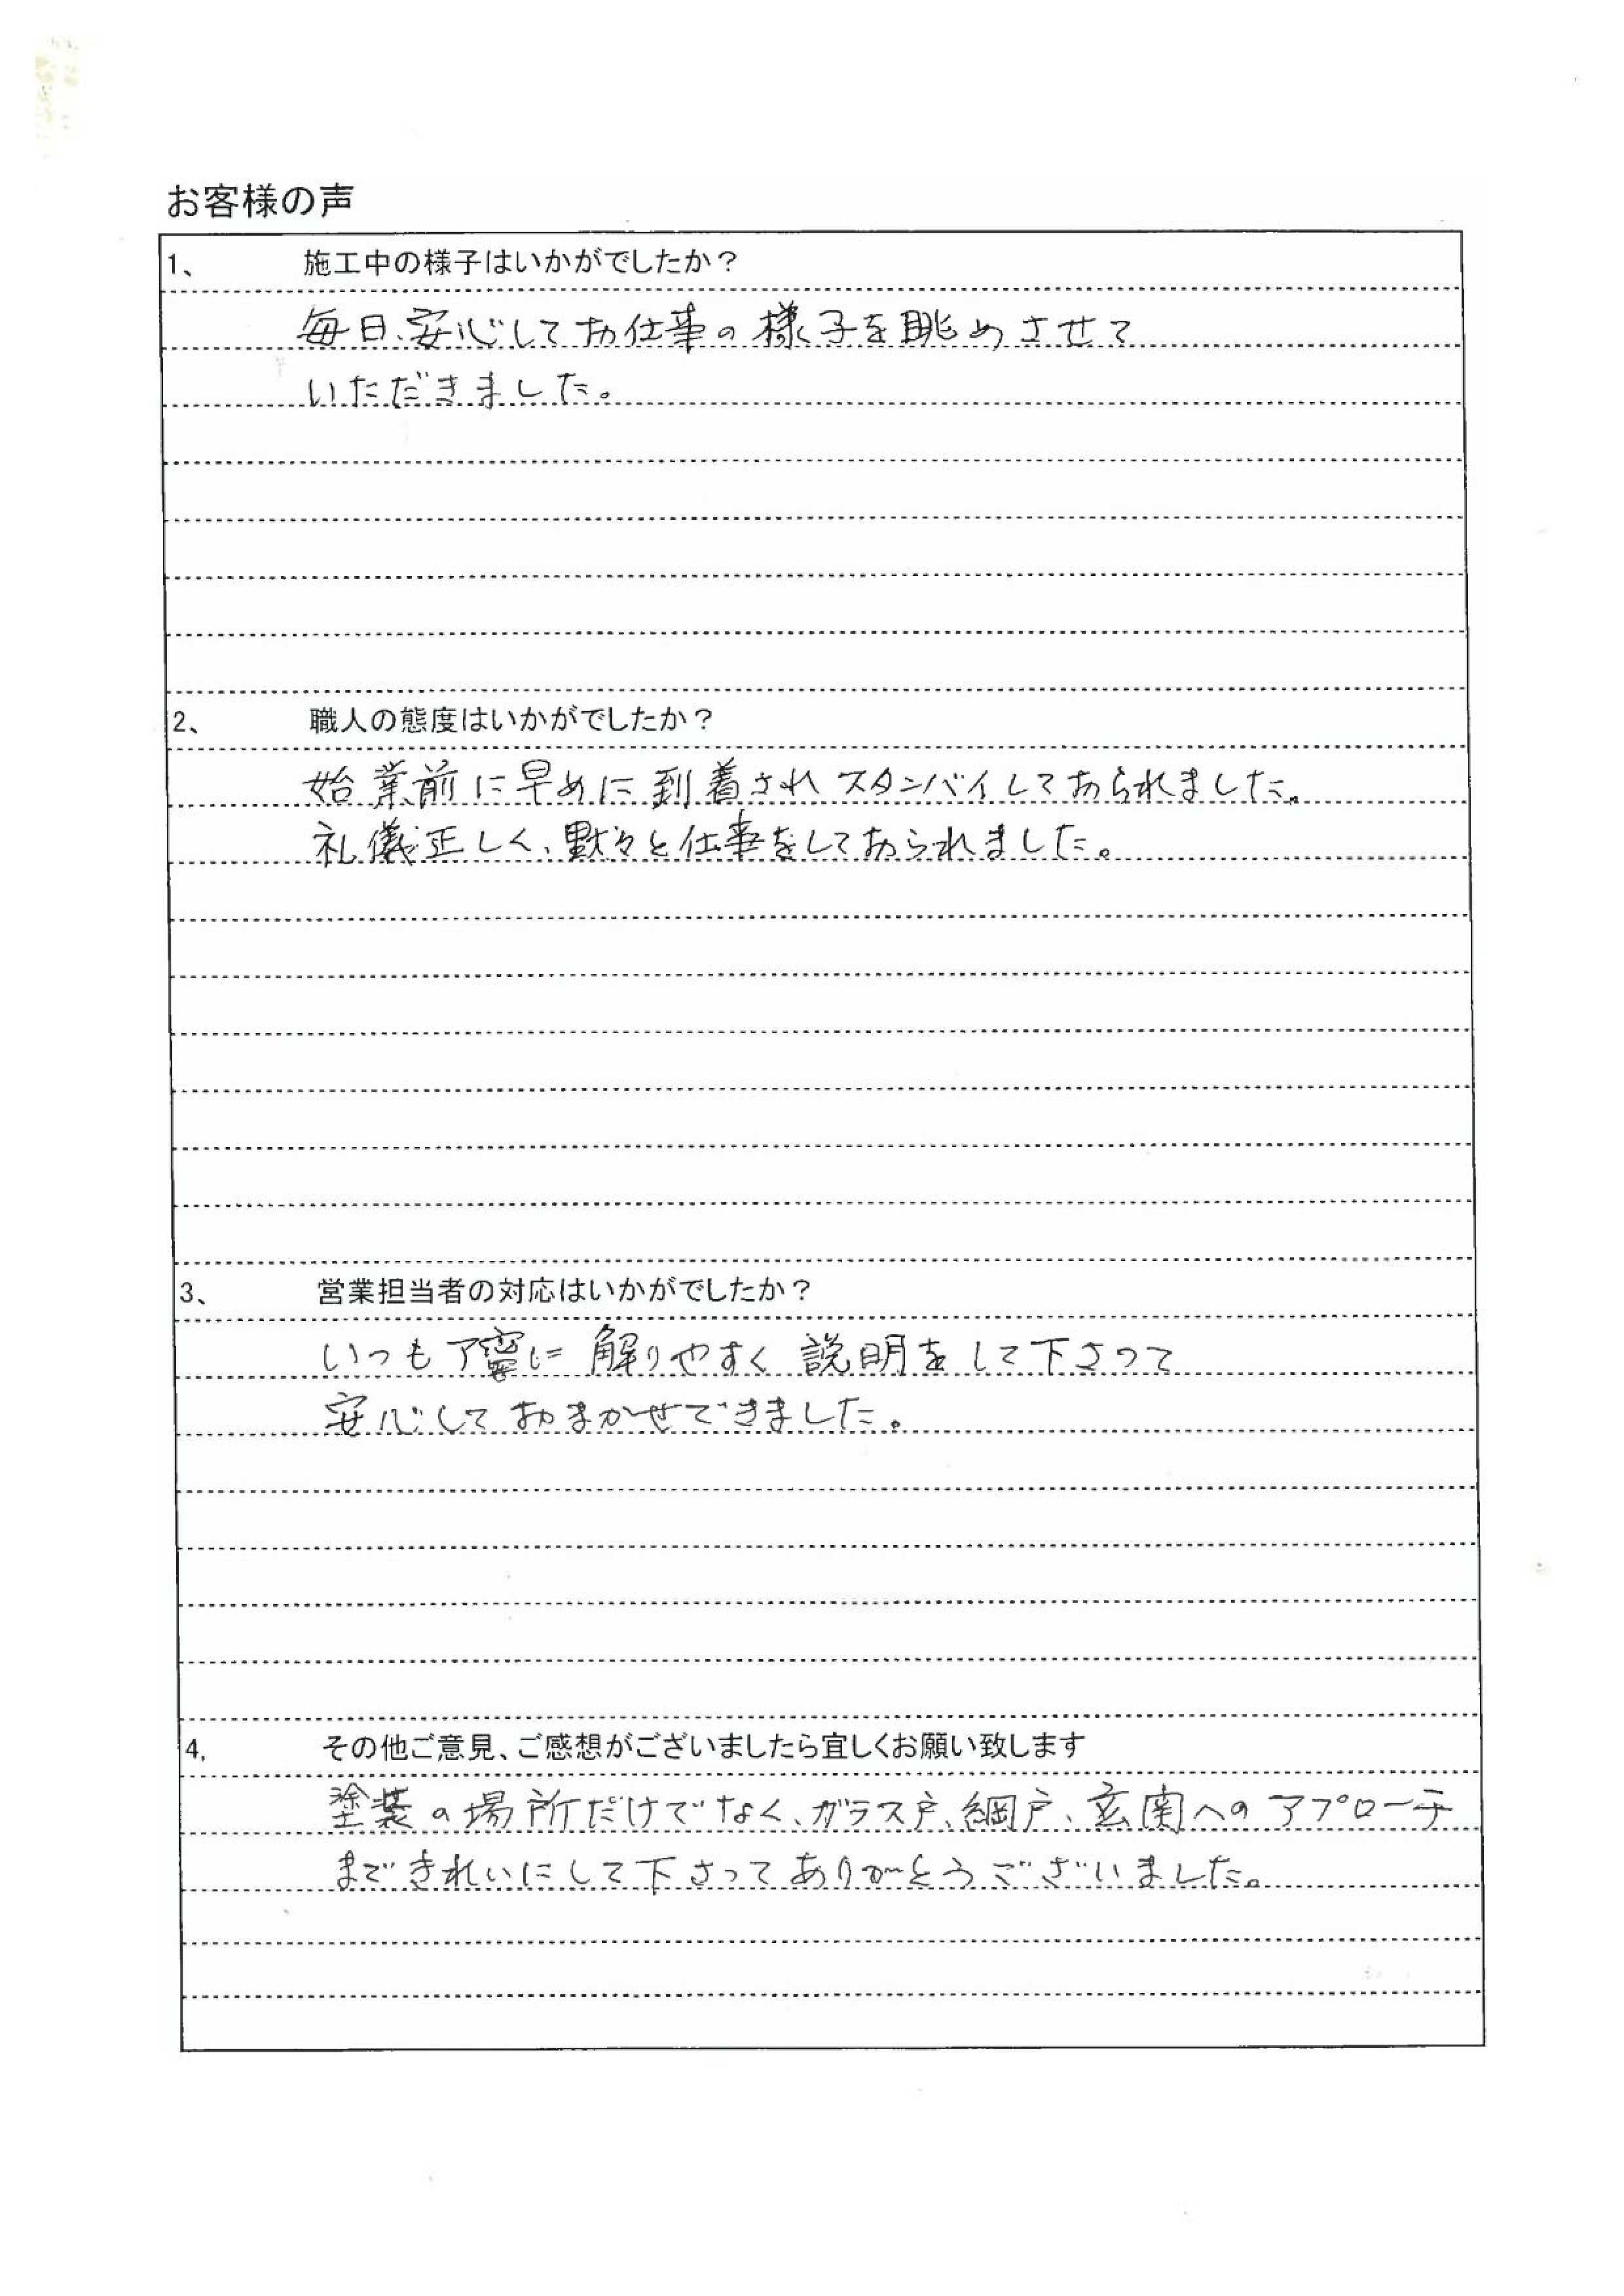 お客様の声
1、 施工中の様子はいかがでしたか？
毎日、安心してお仕事の様子を眺めさせて
いただきました。
2、 職人の態度はいかがでしたか？
始業前に早めに到着されスタンバイしておられました。
礼儀正しく、黙々と仕事をしておられました。
3、 営業担当者の対応はいかがでしたか？
いつも丁寧に解りやすく説明をして下さって
安心しておまかせできました。
4, その他ご意見、ご感想がございましたら宜しくお願い致します
塗装の場所だけでなく、ガラス戸、網戸、玄関へのアプローチ
まできれいにして下さってありがとうございました。